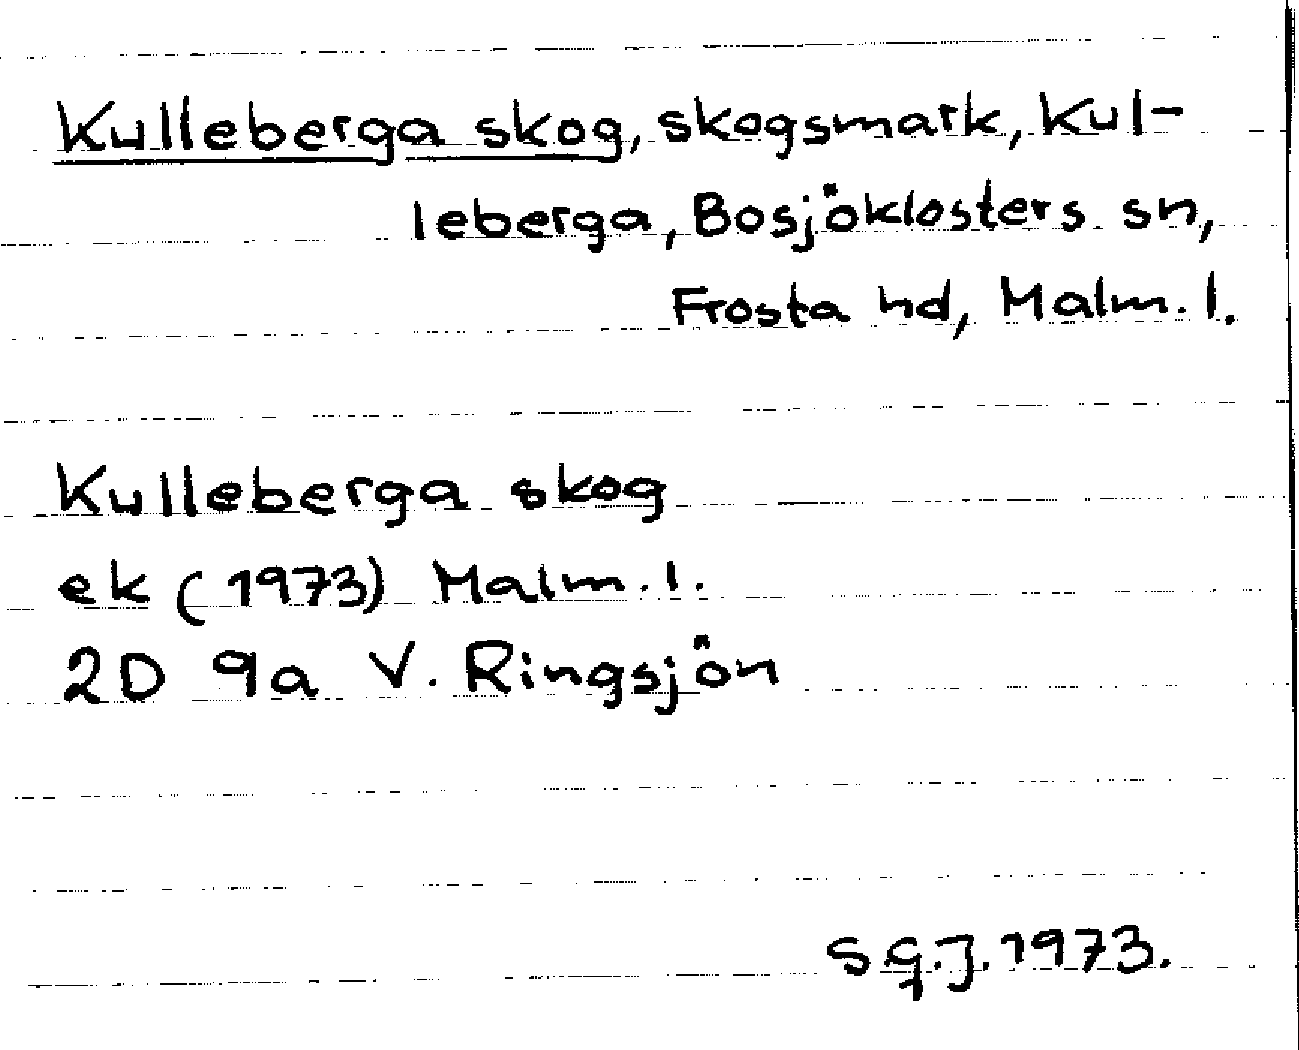 Kulleberga skog, skogsmark, Kul-
leberga, Bosjöklosters sn,
Frosta hd, Malm. l.
Kulleberga skog
ek (1973) Malm. l.
2D 9a V. Ringsjön
S.G.J. 1973.